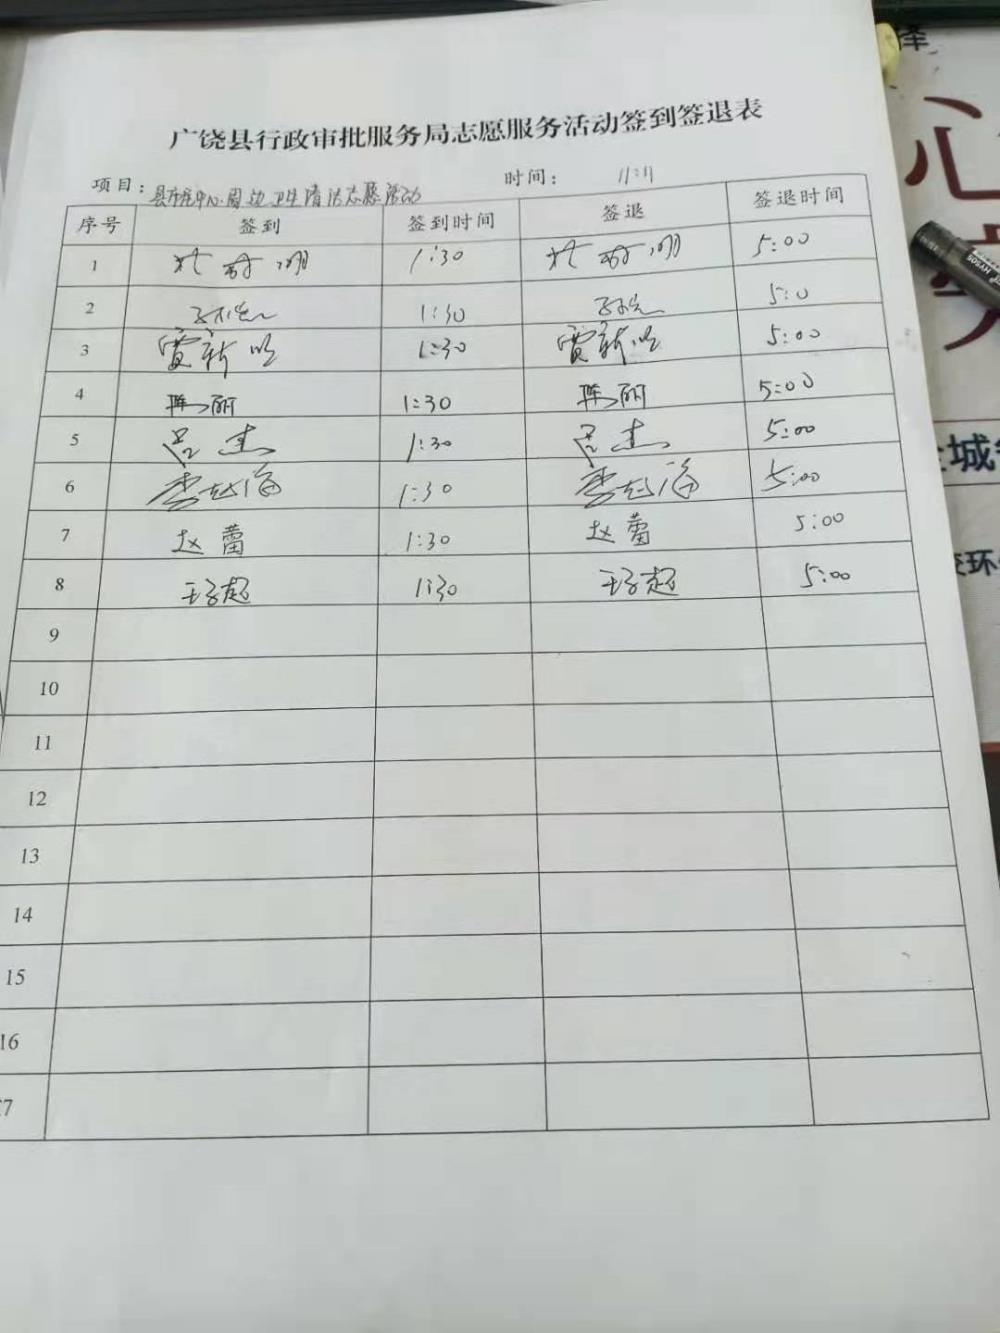 广饶县行政审批服务局志愿服务活动签到签退表
项目: 县市民中心周边卫生清洁志愿活动 时间: 11.11
序号 签到 签到时间 签退 签退时间
1 1:30 5:00
2 1:30 5:0
3 贾新 1:30 贾新 5:00
4 陈丽 1:30 陈丽 5:00
5 吕杰 1:30 吕杰 5:00
6 李海 1:30 李海 5:00
7 赵蕾 1:30 赵蕾 5:00
8 王子超 1:30 王子超 5:00
9
10
11
12
13
14
15
16
17
择
心
城
环